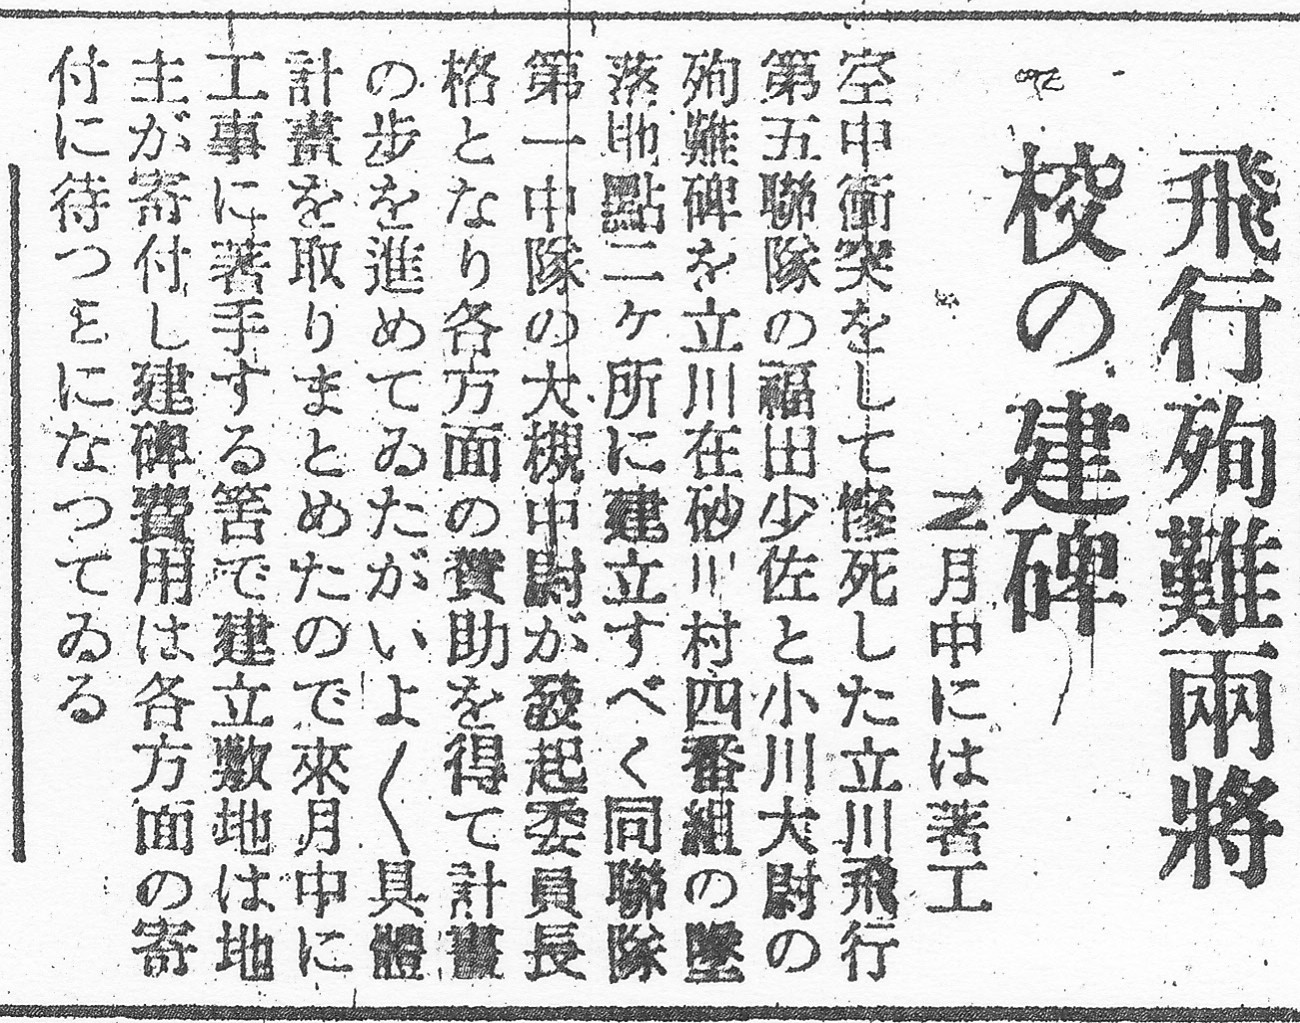 飛行殉難兩將
校の建碑
二月中には著工
空中衝突をして慘死した立川飛行
第五聯隊の福田少佐と小川大尉の
殉難碑を立川在砂川村四番組の墜
落地點二ヶ所に建立すべく同聯隊
第一中隊の大槻中尉が發起委員長
格となり各方面の賛助を得て計畫
の歩を進めてゐたがいよ〱具體
計畫を取りまとめたので來月中に
工事に著手する筈で建立敷地は地
主が寄付し建碑費用は各方面の寄
付に待つことになつてゐる